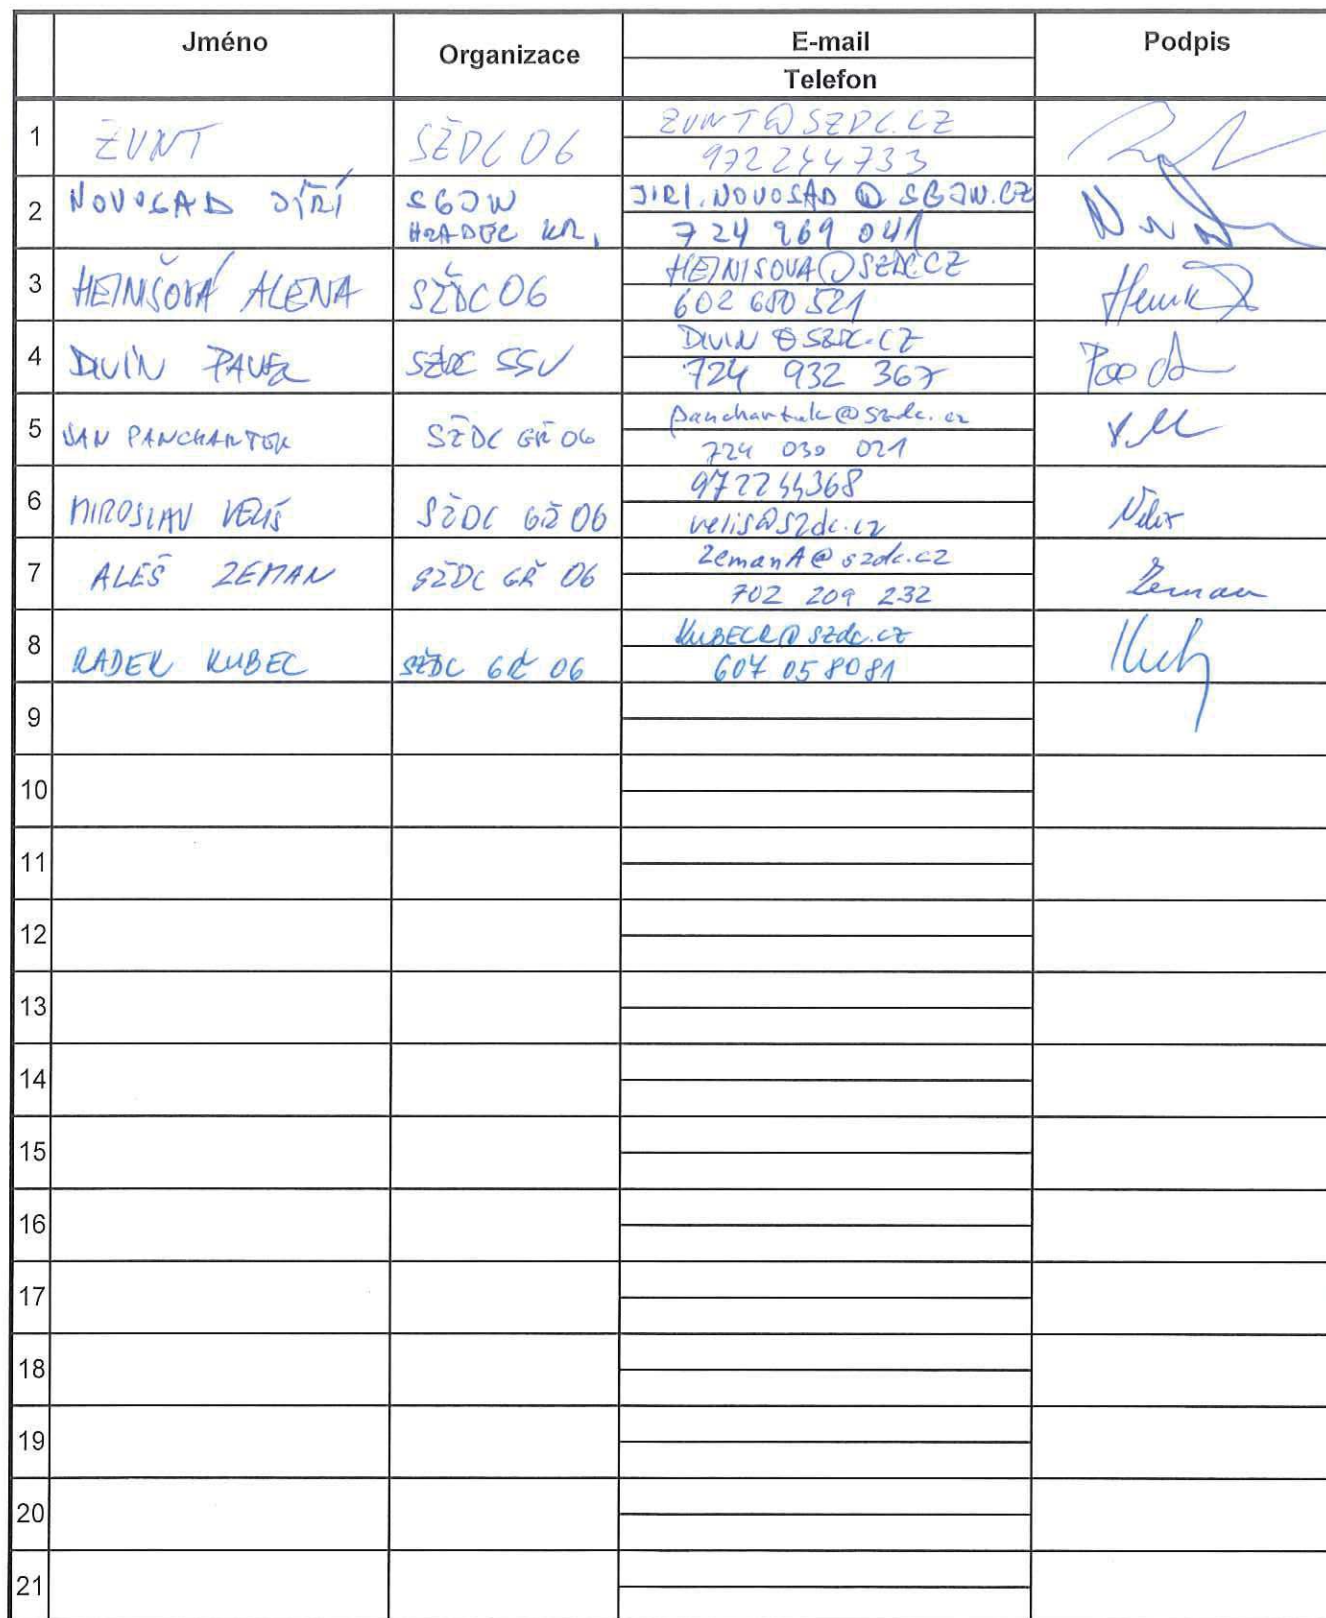 Jméno Organizace E-mail Podpis
Telefon
1 ŽUNT SŽDC O6 ZUNT@SZDC.CZ
972244733
2 NOVOSAD JIŘÍ SGJW JIRI.NOVOSAD@SGJW.CZ
HRADEC KR. 724 969 041
3 HEJNIŠOVÁ ALENA SŽDC O6 HEJNISOVA@SZDC.CZ
602 680 521
4 DIVÍN PAVEL SŽDC SSV DIVIN@SZDC.CZ
724 932 367
5 JAN PANCHARTEK SŽDC GŘ O6 panchartek@szdc.cz
724 030 021
6 MIROSLAV VELIŠ SŽDC GŘ O6 972244368
velis@szdc.cz
7 ALEŠ ZEMAN SŽDC GŘ O6 ZemanA@szdc.cz Zeman
702 209 232
8 RADEK KUBEC SŽDC GŘ O6 KUBECR@szdc.cz
607 058081
9
10
11
12
13
14
15
16
17
18
19
20
21